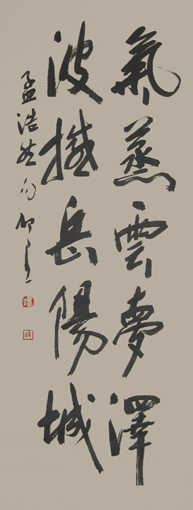 氣蒸雲夢澤
波撼岳陽城
孟浩然句